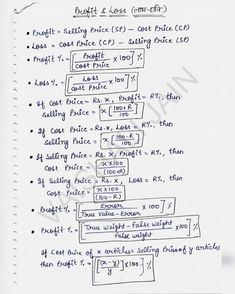 Profit & Loss (लाभ-हानि)
• Profit = Selling Price (SP) - Cost Price (CP)
• Loss = Cost Price (CP) - Selling Price (SP)
• Profit % = [Profit / Cost Price × 100] %
• Loss % = [Loss / Cost Price × 100] %
• If Cost Price = Rs. x, Profit = R%, then
Selling Price = x [100+R / 100]
• If Cost Price = Rs. x, Loss = R%, then
Selling Price = x [100-R / 100]
• If Selling Price = Rs. x, Profit = R%, then
Cost Price = [x×100 / (100+R)]
• If Selling Price = Rs. x, Loss = R%, then
Cost Price = [x×100 / (100-R)]
• Profit % = [Error / True Value - Error × 100] %
• Profit % = [True Weight - False Weight / False Weight × 100] %
If Cost Price of x articles = Selling Price of y articles
then Profit % = [(x-y) / y] × 100] %